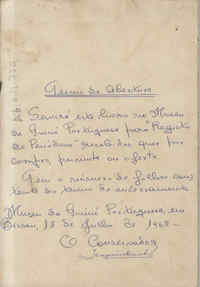 Termo de Abertura
Servirá este livro no Museu
da Guiné Portuguesa para Registo
de Periódicos recebidos quer por
compra, permuta ou oferta.
Tem o número de folhas cons-
tante do termo de encerramento.
Museu da Guiné Portuguesa, em
Bissau, 18 de Julho de 1968.-
O Conservador